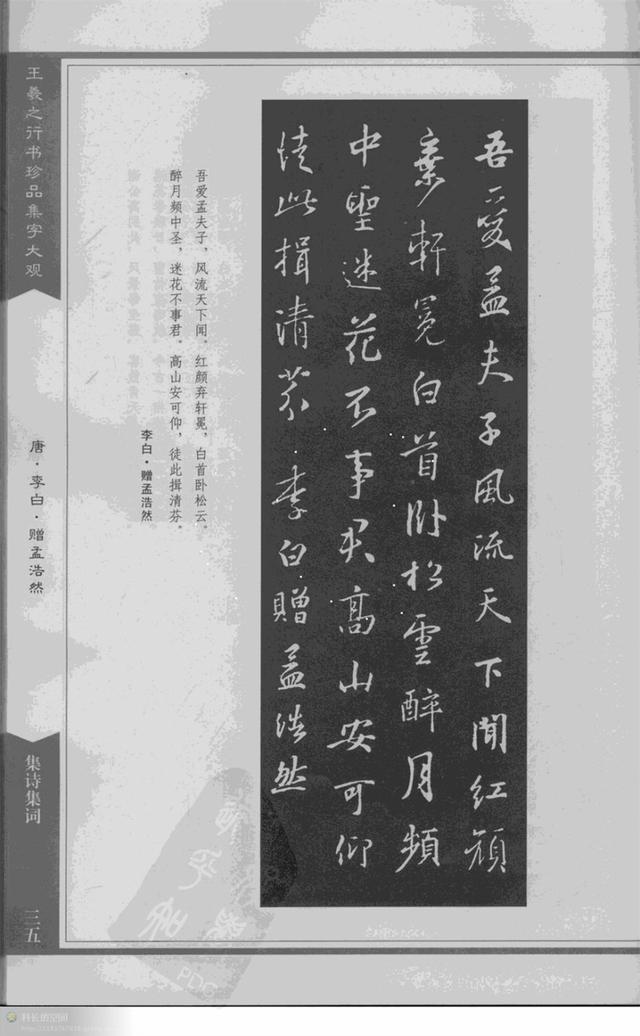 吾愛孟夫子風流天下聞紅顏
棄軒冕白首卧松雲醉月頻
中聖迷花不事君高山安可仰
徒此揖清芬李白贈孟浩然
吾爱孟夫子，风流天下闻。红颜弃轩冕，白首卧松云。
醉月频中圣，迷花不事君。高山安可仰，徒此揖清芬。
李白·赠孟浩然
王羲之行书珍品集字大观
唐·李白·赠孟浩然
集诗集词
三五
PDG
科长的空间